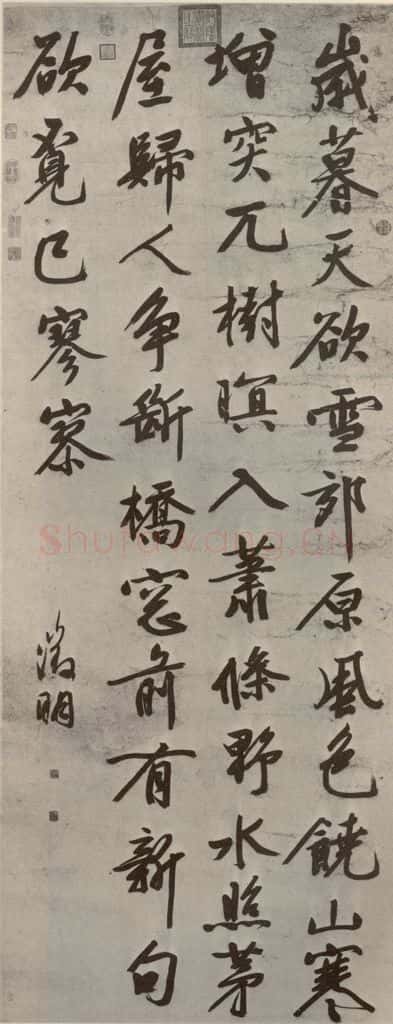 歲暮天欲雪郊原風色饒山寒
增突兀樹暝入蕭條野水照茅
屋歸人爭斷橋窓前有新句
欲覓已寥寥
徵明
Shufawang.CN